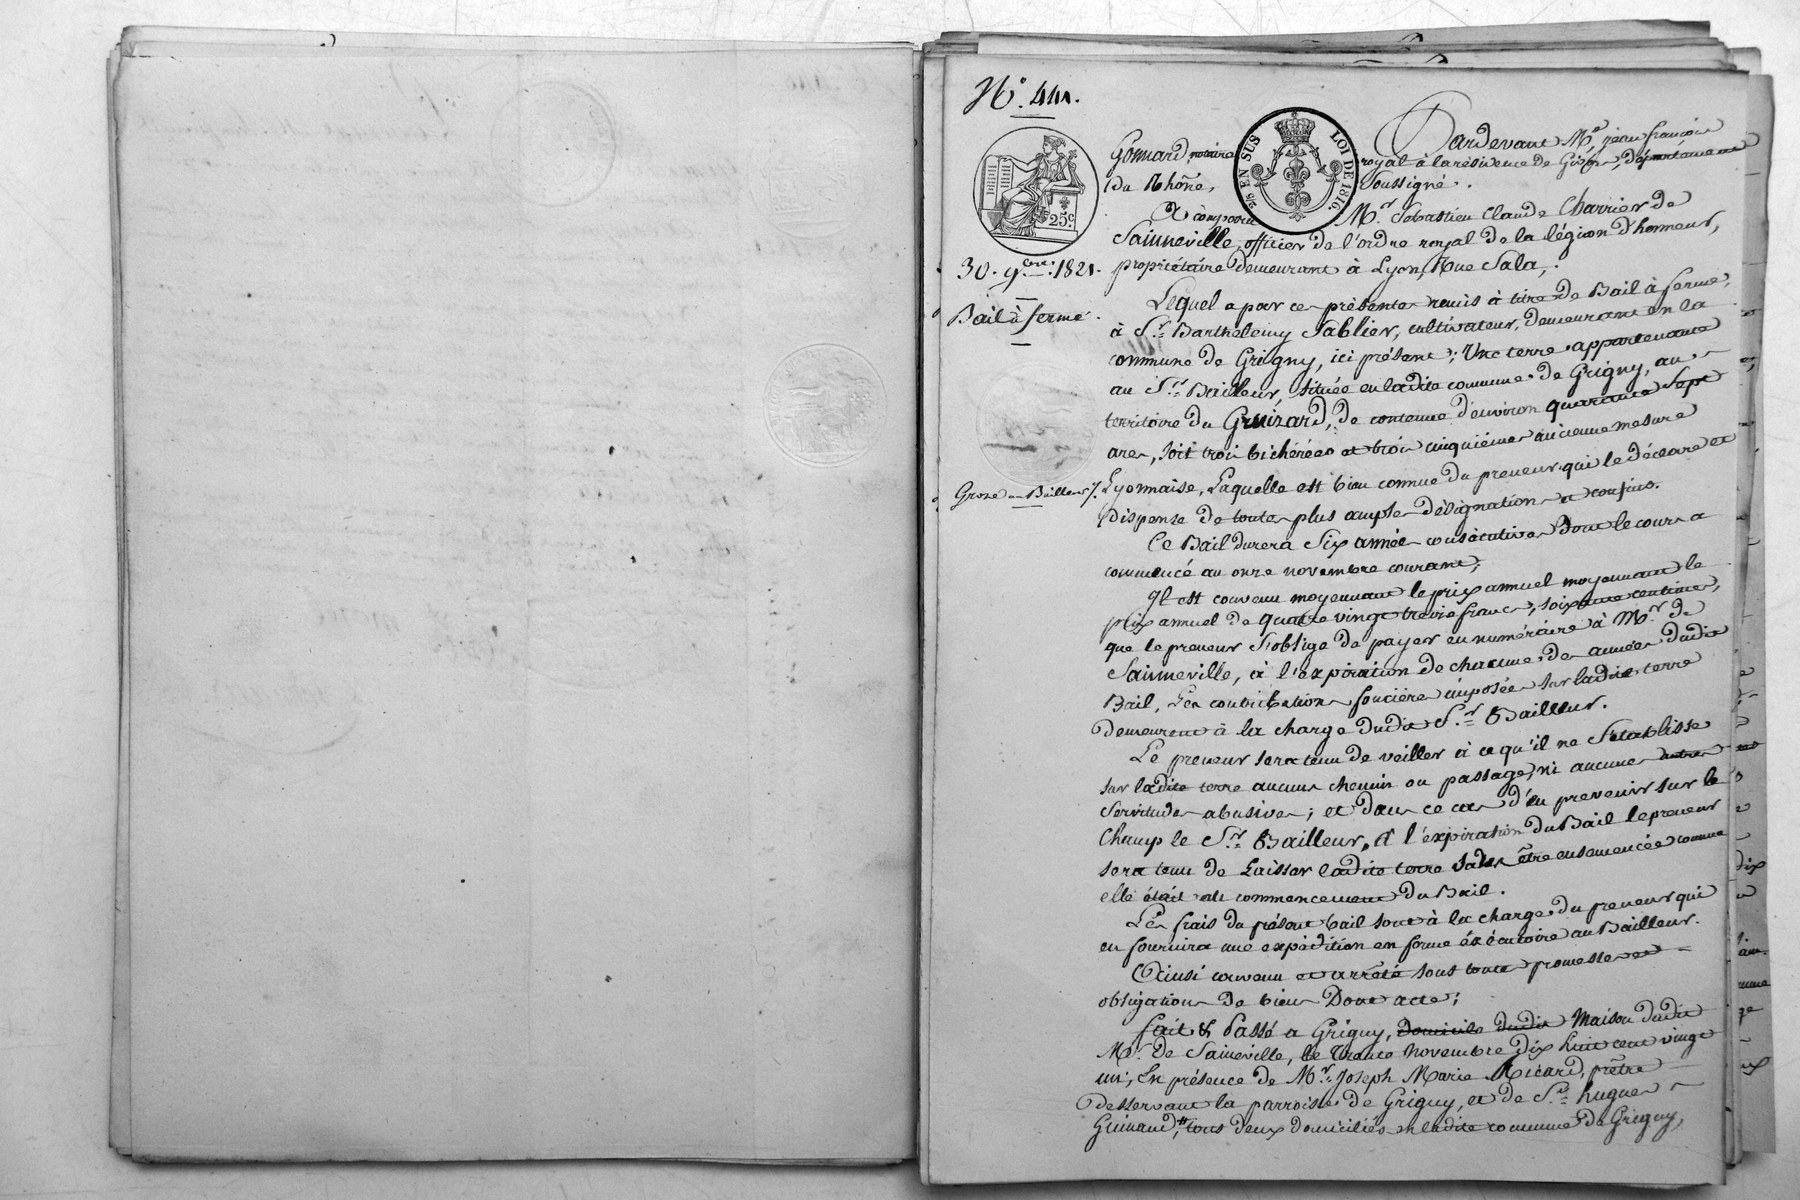 N.° 441.
Pardevant M.e jean françois
Gonnard, notaire royal à la résidence de Givors, département
Du Rhône, Soussigné.
EN SUS LOI DE 1816
25 c.
A comparu M.r Sébastien Claude Charrier de
Sainneville, officier de l'ordre royal de la légion d'honneur,
30. 9bre. 1821.
propriétaire demeurant à Lyon, Rue Sala,.
Lequel a par ces présentes remis à titre de Bail à ferme,
Bail à ferme.
à S.r Barthélemy Sablier, cultivateur, demeurant en la
commune de Grigny, ici présent; Une terre appartenante
au S.r Bailleur, située en ladite commune de Grigny, au
territoire du Gruizard, de contenue d'environ quarante Sept
ares, soit trois bichérées et trois cinquièmes ancienne mesure
Grosse au Bailleur /.
Lyonnaise, Laquelle est bien connue du preneur qui le déclare et
dispense de toutes plus amples désignations et confins.
Ce Bail durera Six années consécutives dont le cours a
commencé au onze novembre courant;
Il est convenu moyennant le prix annuel moyennant le
prix annuel de quatre vingt treize francs, soixante centimes,
que le preneur s'oblige de payer en numéraire à M.r de
Sainneville, à l'expiration de chacune des années dudit
Bail, Les contributions foncières imposées sur ladite terre
demeurent à la charge dudit S.r Bailleur.
Le preneur sera tenu de veiller à ce qu'il ne S'établisse
sur ladite terre aucuns chemins ou passage, ni aucunes autres
Servitudes abusives; et dans ce cas d'en prevenir sur le
Champ le S.r Bailleur, A l'expiration du Bail le preneur
sera tenu de Laisser ladite terre sans être ensemencée comme
elle était au commencement du Bail.
Les frais du présent bail sont à la charge du preneur qui
en fournira une expédition en forme éxécutoire au Bailleur.
Ainsi convenu et arrêté sous toute promesses et
obligations de biens Dont acte;
fait & Passé a Grigny, Domicile dudit Maison dudit
M.r de Saineville, le trente novembre dix huit cent vingt
un; En présence de M.r Joseph Marie Ricard, prêtre
desservant la parroisse de Grigny, et de S.r hugues
Guinand, tous deux domiciliés en ladite commune de Grigny,